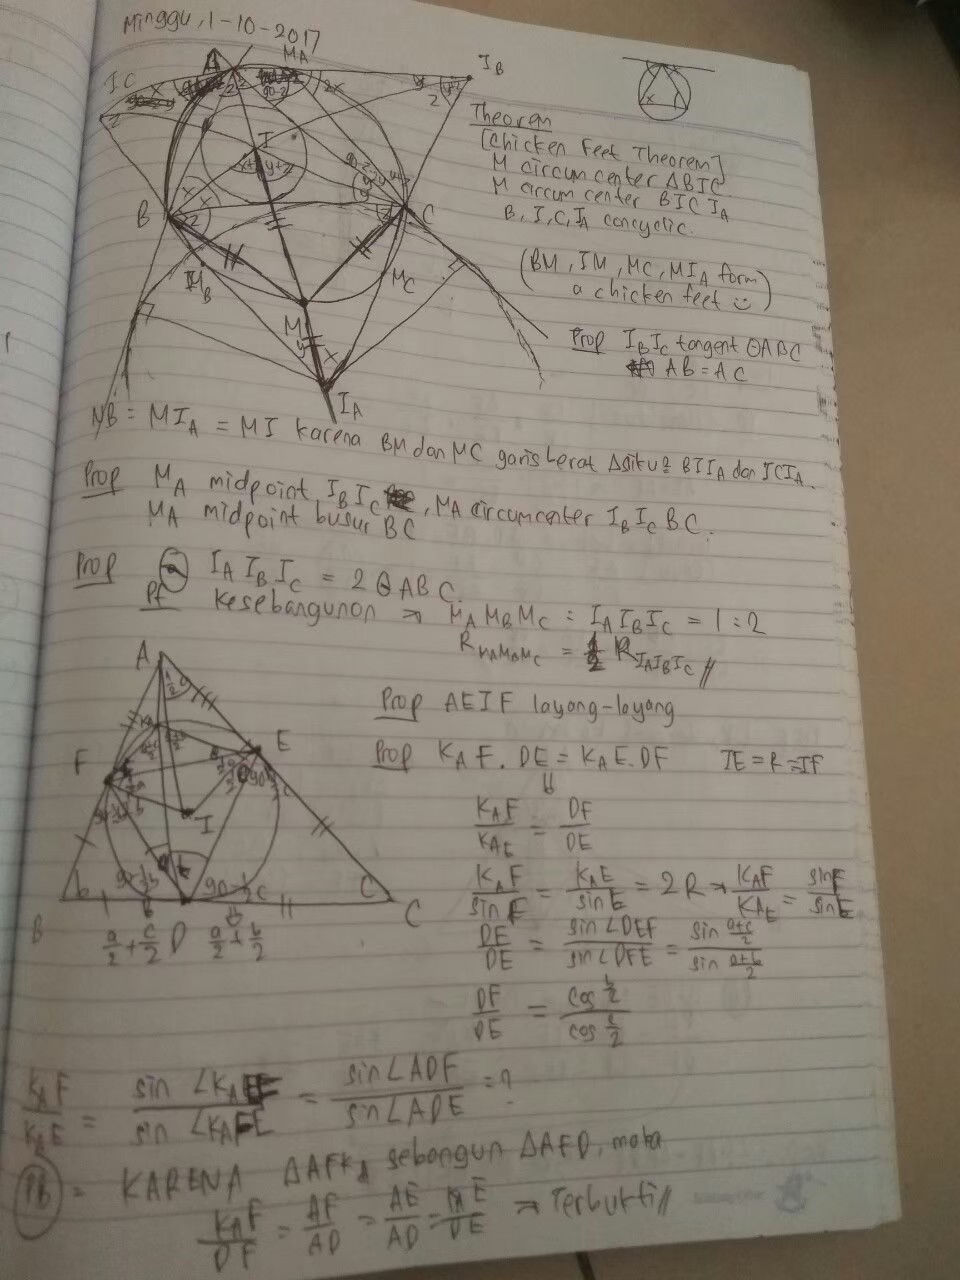 Minggu, 1-10-2017
MA
IB
IC
A
I
B
C
MB
MC
M
IA
Theorem
[Chicken Feet Theorem]
M circum center ΔBIC
M circum center BICIA
B, I, C, IA concyclic.
(BM, IM, MC, MIA form
a chicken feet ☺)
Prop IBIC tangent ⊙ABC
AB = AC
MB = MIA = MI karena BM dan MC garis berat Δsiku2 BIIA dan ICIA.
Prop MA midpoint IBIC, MA circumcenter IBICBC.
MA midpoint busur BC
Prop IAIBIC = 2⊙ABC.
Pf Kesebangunan → MAMBMC : IAIBIC = 1:2
RMAMBMC = 1/2 RIAIBIC //
Prop AEIF layang-layang
Prop KAF . DE = KAE . DF IE = R = IF
KAF/KAE = DF/DE
KAF/sin F = KAE/sin E = 2R → KAF/KAE = sin F/sin E
DF/DE = sin∠DEF/sin∠DFE = sin (a+c)/2 / sin (a+b)/2
DF/DE = cos b/2 / cos c/2
A
F
E
I
B
D
C
90-1/2b
90-1/2c
a/2 + c/2
a/2 + b/2
KAF/KAE = sin∠KAEF/sin∠KAFE = sin∠ADF/sin∠ADE = ?
PB = KARENA ΔAFKA sebangun ΔAFD, maka
KAF/DF = AF/AD = AE/AD = KAE/DE → Terbukti //